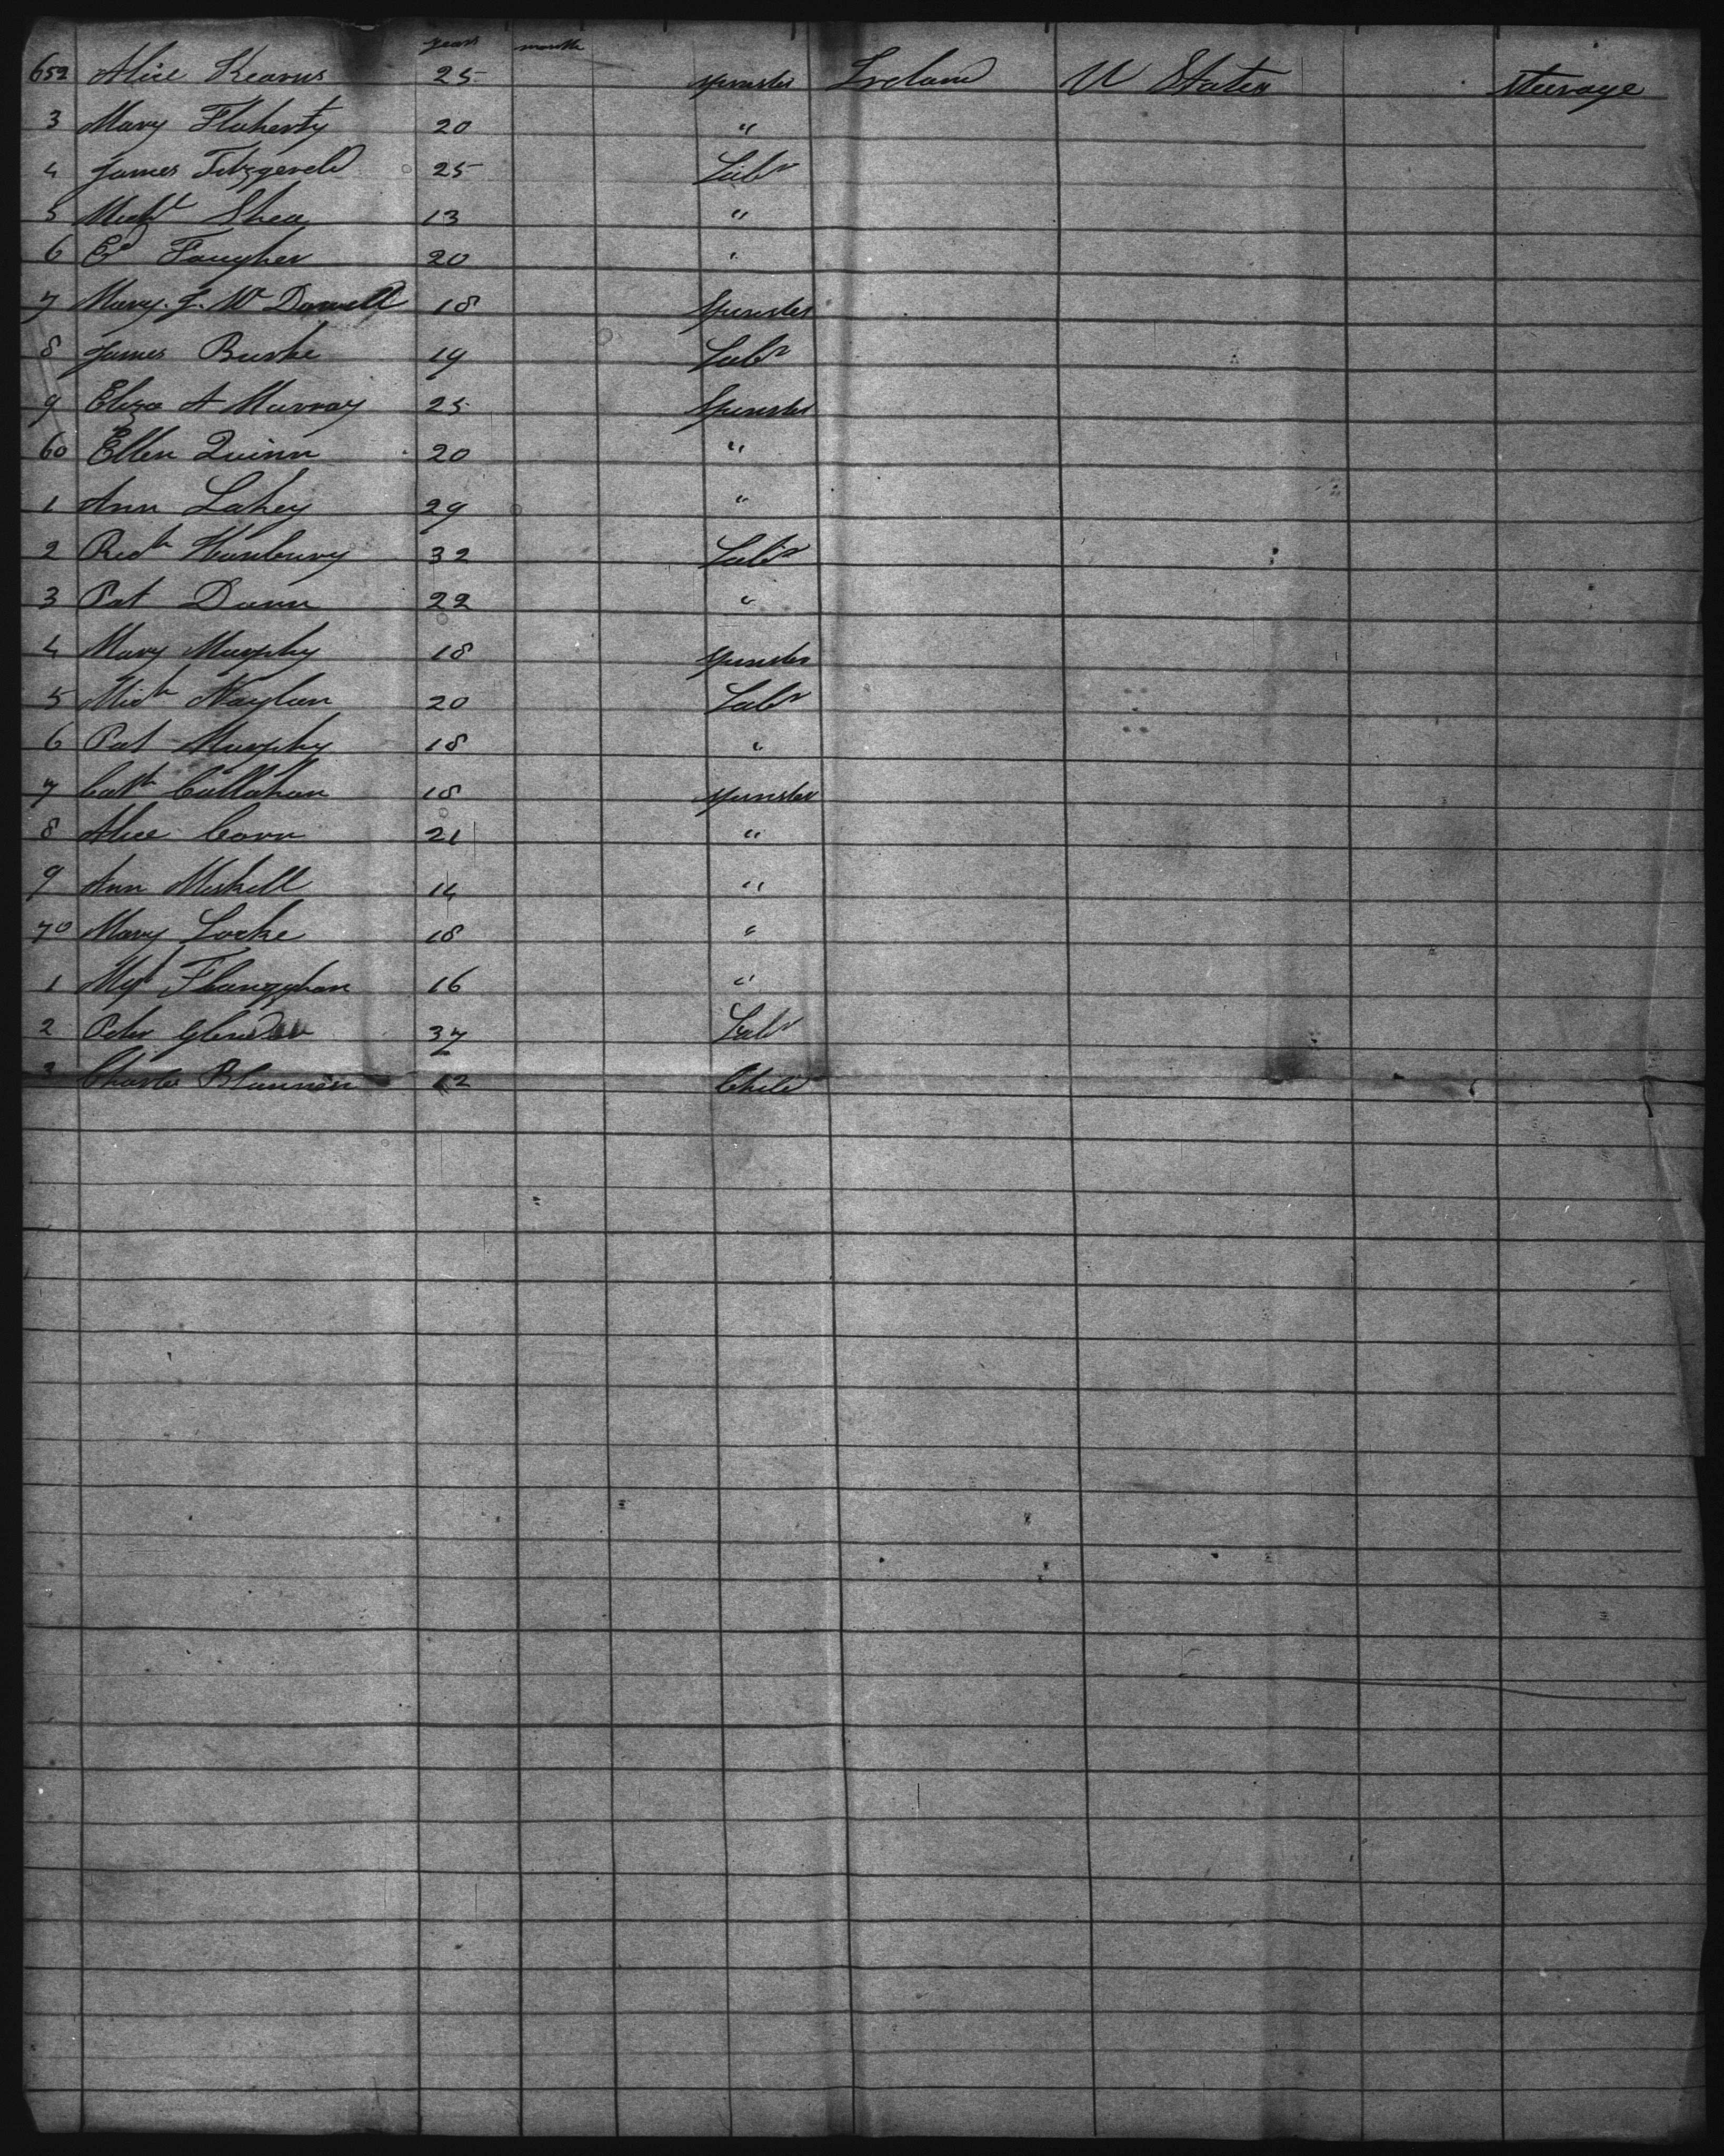 years months
652 Alice Kearns 25 Spinster Ireland U States Steerage
3 Mary Flaherty 20 "
4 James Fitzgerald 25 Labr
5 Michl Shea 13 "
6 Ed Faugher 20 "
7 Mary J. Mc Donnell 18 Spinster
8 James Burke 19 Labr
9 Eliza A Murray 25 Spinster
60 Ellen Quinn 20 "
1 Ann Lahey 29 "
2 Richd Hanbury 32 Labr
3 Pat Dunn 22 "
4 Mary Murphy 18 Spinster
5 Mich Naylan 20 Labr
6 Pat Murphy 18 "
7 Cath Callahan 18 Spinster
8 Alice Carr 21 "
9 Ann Miskell 14 "
70 Mary Locke 18 "
1 Mgt Flanaghan 16 "
2 Peter 37 Labr
3 Charles 12 Child